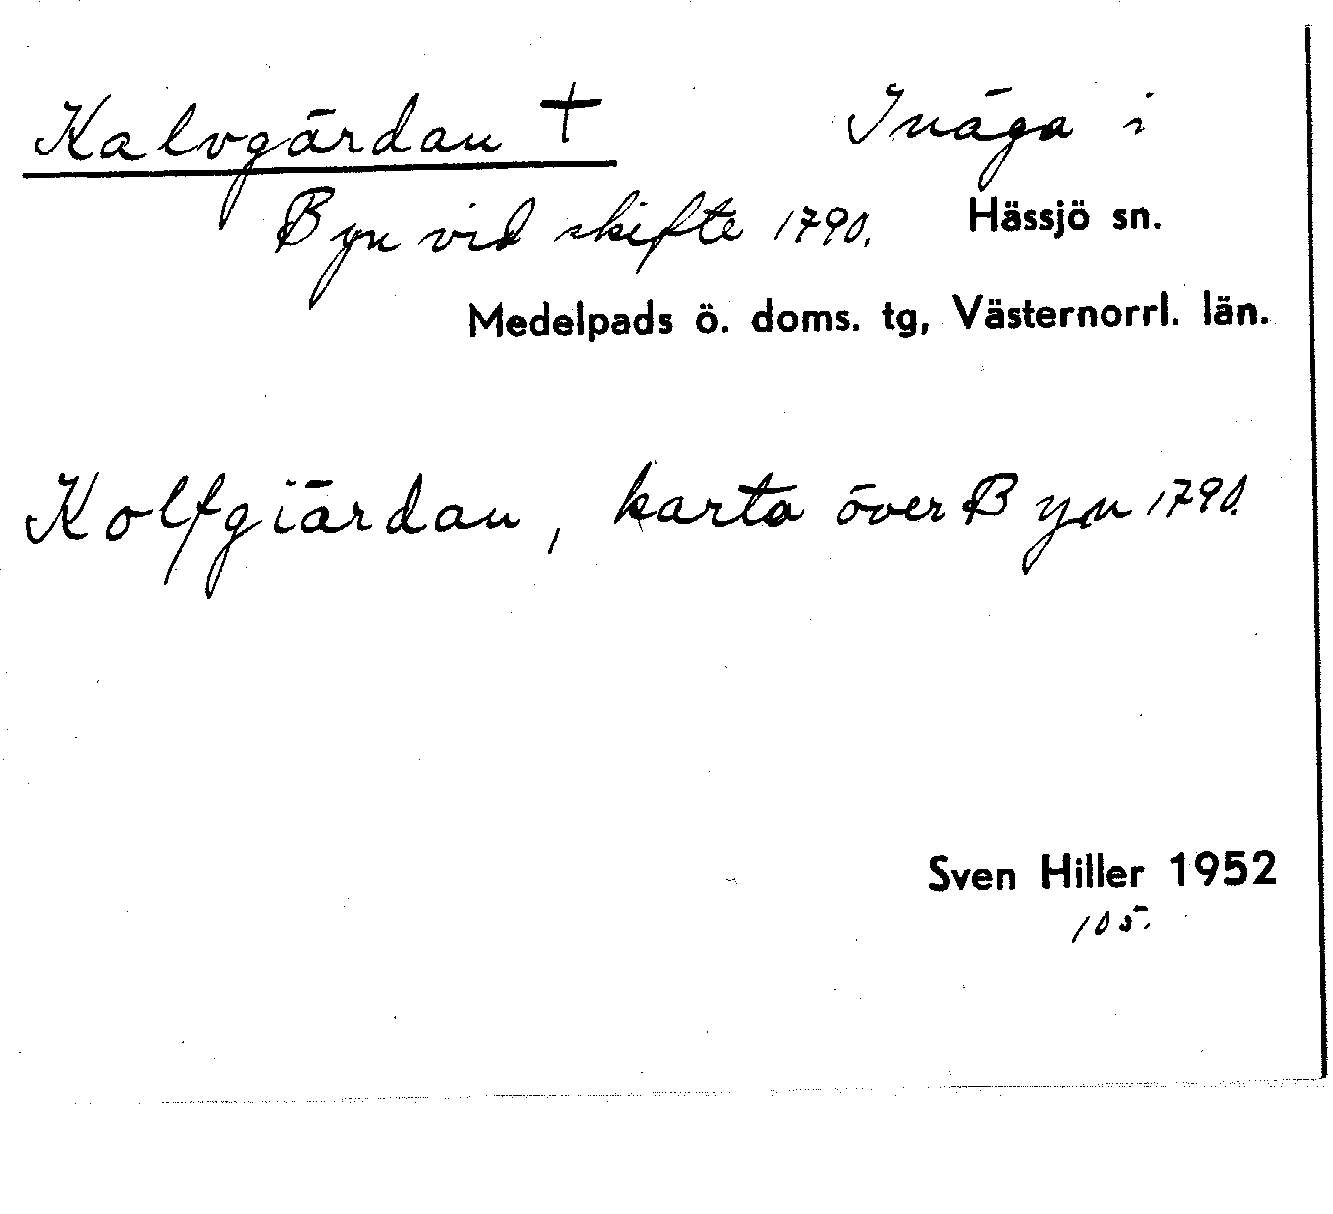 Kalvgärdan † Inäga i
Byn vid skifte 1790. Hässjö sn.
Medelpads ö. doms. tg, Västernorrl. län.
Kolfgiärdan, karta över Byn 1790.
Sven Hiller 1952
105.